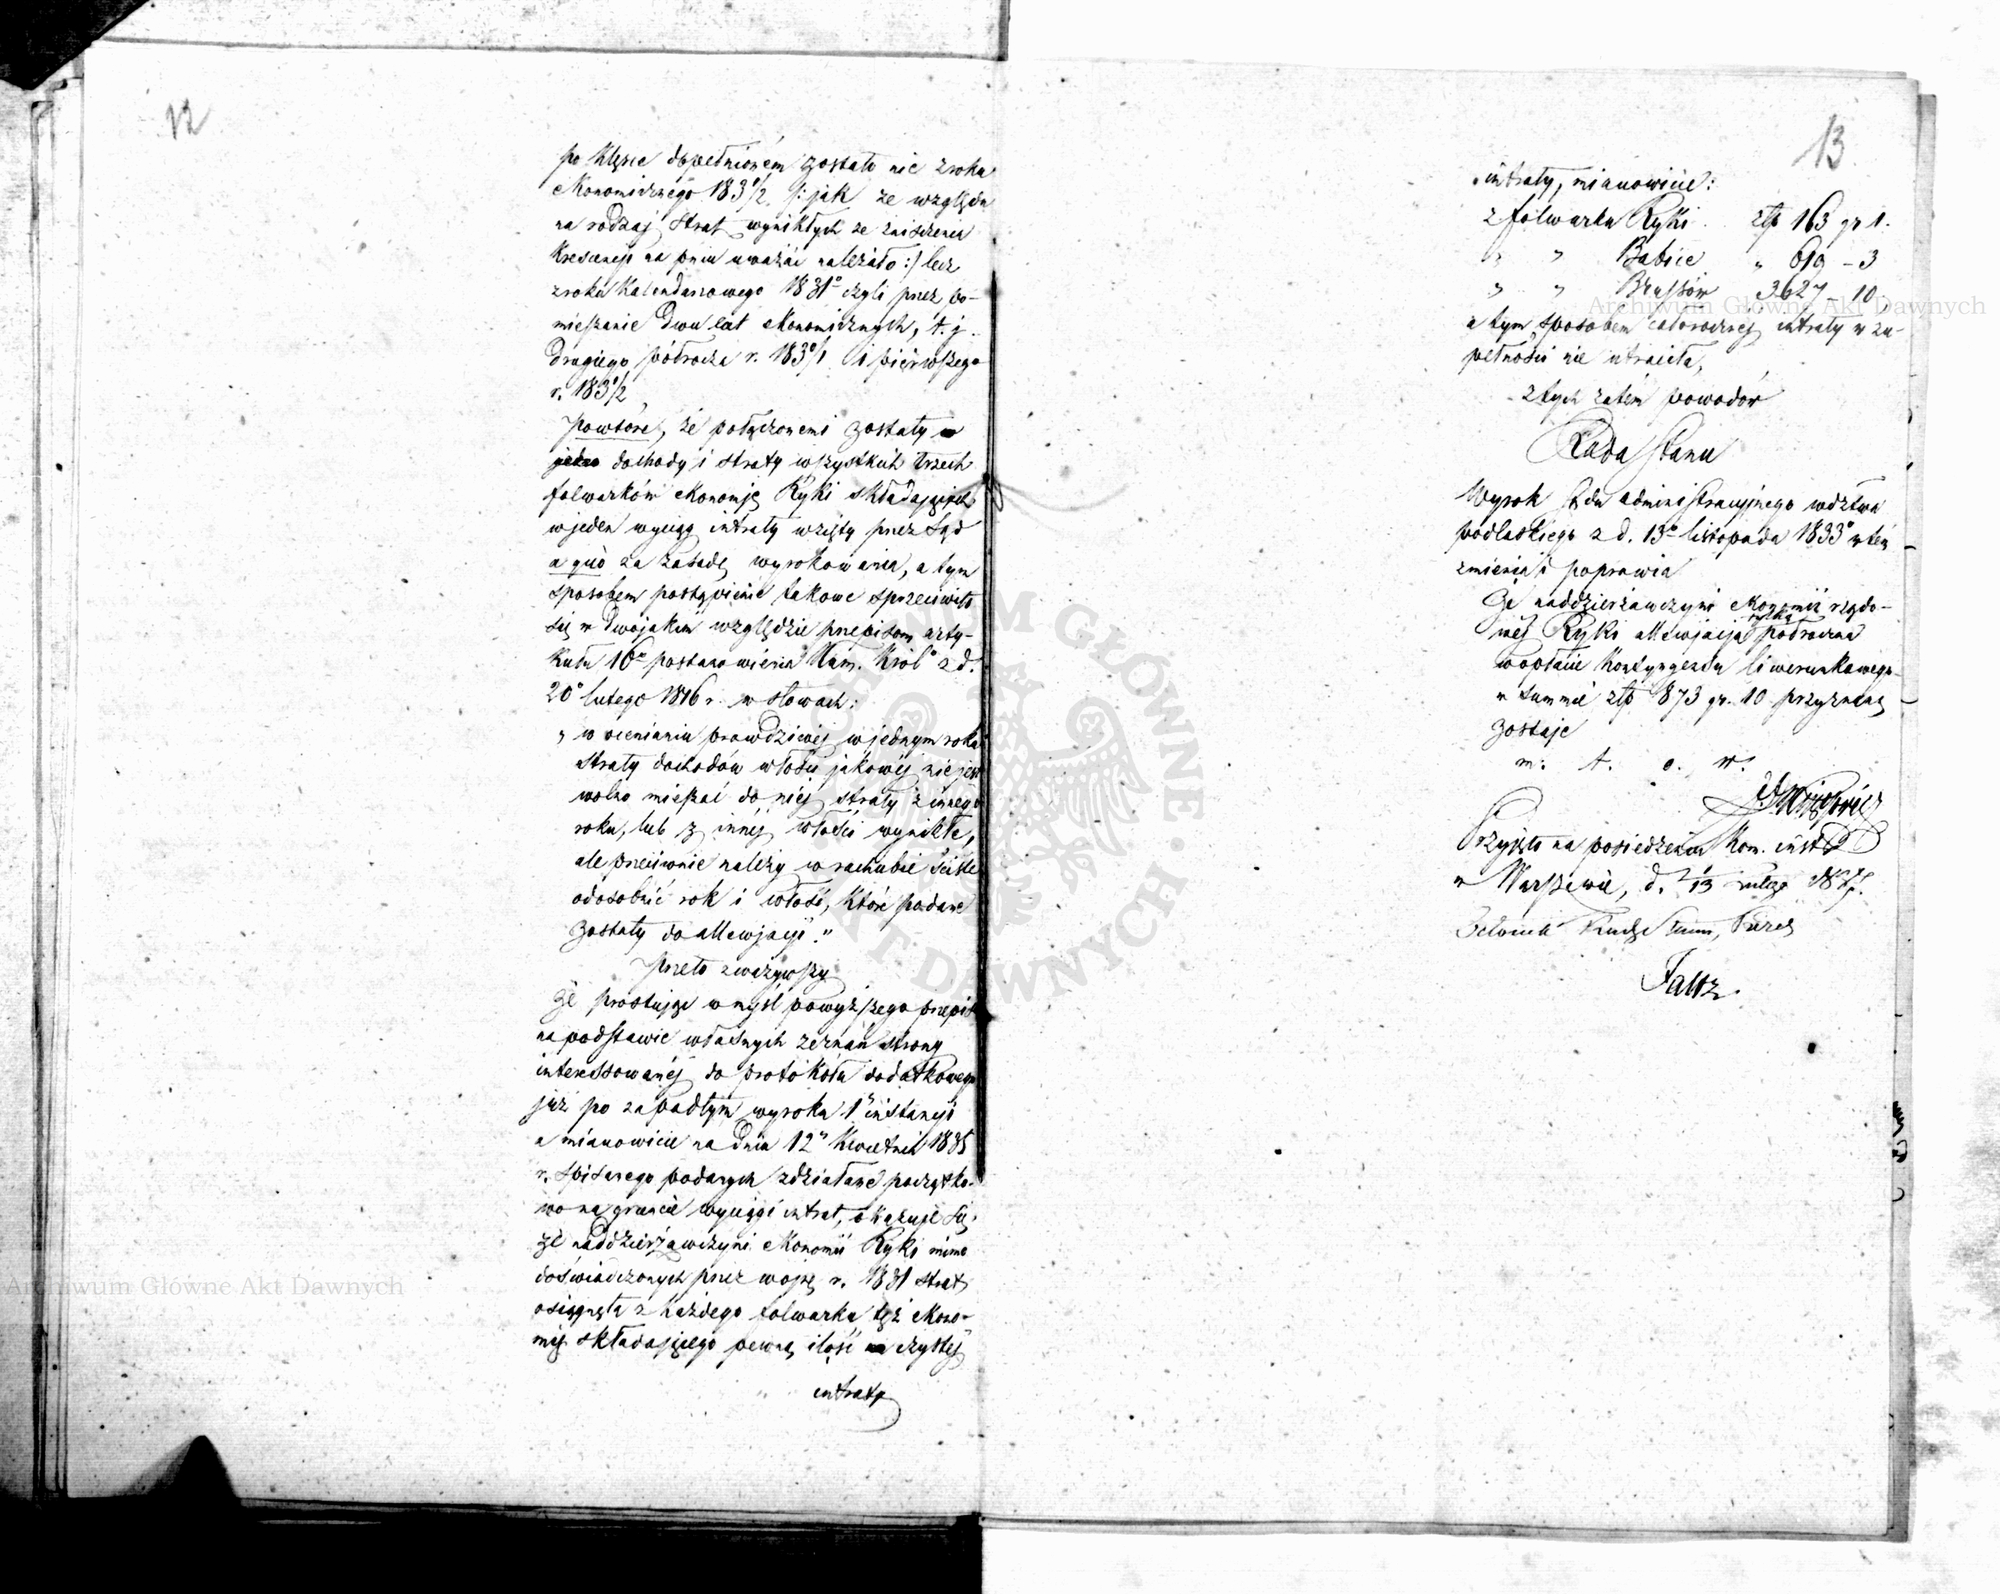 12
po klęsce dopełnioném zostało nie z roku
ekonomicznego 183½ /: jak ze względu
na rodzaj strat wynikłych ze zniszczenia
krescencji na pniu uważać należało :/ lecz
z roku kalendarzowego 1831º czyli przez po-
mięszanie dwu lat ekonomicznych, t. j.
drugiego półrocza r. 183º/1 i pierwszego
r. 183½
powtóre, że połączonemi zostały w
jedno dochody i straty wszystkich trzech
folwarków ekonomję Ryki składających
w jeden wyciąg intraty wzięty przez Sąd
a quò za zasadę wyrokowania, a tym
sposobem postąpienie takowe sprzeciwiło
się w dwojakim względzie przepisom arty-
kułu 10º postanowienia Nam. Król. z d.
20º lutego 1816 r. w słowach:
„ w ocenianiu prawdziwéj w jednym roku
straty dochodów włości jakowéj nie jest
wolno mieszać do niéj straty z innego
roku, lub z innéj włości wynikłe,
ale przeciwnie należy w rachubie ściśle
odosobnić rok i włość, które podane
zostały do allewjacji."
przeto zważywszy
że prostując w myśl powyższego przepisu
na podstawie własnych zeznań strony
interessowanéj do protokołu dodatkowego
już po zapadłym wyroku 1º instancji
a mianowicie na dniu 12º kwietnia 1835
r. spisanego podanych zdziałane początko-
wo na gruncie wyciągi intrat, okazuje się,
że naddzierżawczyni ekonomii Ryki mimo
doświadczonych przez wojnę r. 1831 strat
osiągnęła z każdego folwarku tęż ekono-
mję składającego pewną ilość czystéj
intraty
13
intraty, mianowicie:
z folwarku Ryki . złp 163 gr 1.
„ „ Babice „ 619 – 3
„ „ Brusów 3627 – 10
a tym sposobem całorocznéj intraty w zu-
pełności nie utraciła,
z tych zatém powodów
Rada Stanu
Wyrok Sądu administracyjnego wdztwa
podlaskiego z d. 13º listopada 1833º w tém
zmienia i poprawia
Że naddzierżawczyni ekonomii rządo-
wéj Ryki allewjacja tylko półroczna
w opłacie kontyngensu liwerunkowego
w summie złp 873 gr. 10 przyznaną
zostaje
m. t. o. w.
Przyjęto na posiedzeniu Kom. inst.
w Warszawie, d. 1/13 lutego
Członek Rady Stanu, Prezes
Faltz